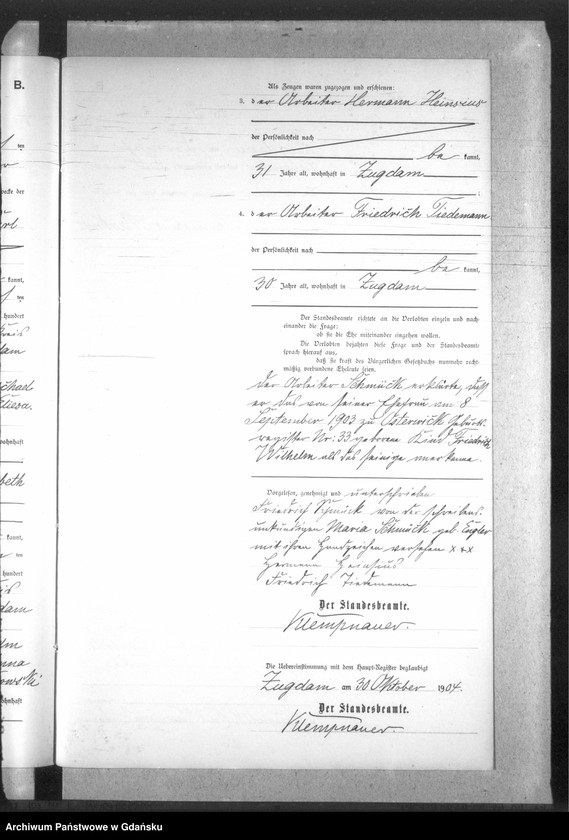 B.
Als Zeugen waren zugezogen und erschienen:
3. der Arbeiter Hermann Heinsius
der Persönlichkeit nach
be kannt,
31 Jahre alt, wohnhaft in Zugdam
;
4. der Arbeiter Friedrich Tiedemann
der Persönlichkeit nach
be kannt,
30 Jahre alt, wohnhaft in Zugdam
Der Standesbeamte richtete an die Verlobten einzeln und nach-
einander die Frage:
ob sie die Ehe miteinander eingehen wollen.
Die Verlobten bejahten diese Frage und der Standesbeamte
sprach hierauf aus,
daß sie kraft des Bürgerlichen Gesetzbuchs nunmehr recht-
mäßig verbundene Eheleute seien.
Der Arbeiter Schmück erklärte, daß
er das von seiner Ehefrau am 8
September 1903 zu Osterwick Geburts-
register Nr: 33 geborene Kind Friedrich
Wilhelm als das seinige anerkenne.
Vorgelesen, genehmigt und unterschrieben
Friedrich Schmück von der schreibens-
unkundigen Maria Schmück geb. Engler
mit ihren Handzeichen versehen x x x
Hermann Heinsius
Friedrich Tiedemann
Der Standesbeamte.
Klempnauer.
Die Uebereinstimmung mit dem Haupt-Register beglaubigt
Zugdam am 30 Oktober 1904.
Der Standesbeamte.
Klempnauer.
Archiwum Państwowe w Gdańsku